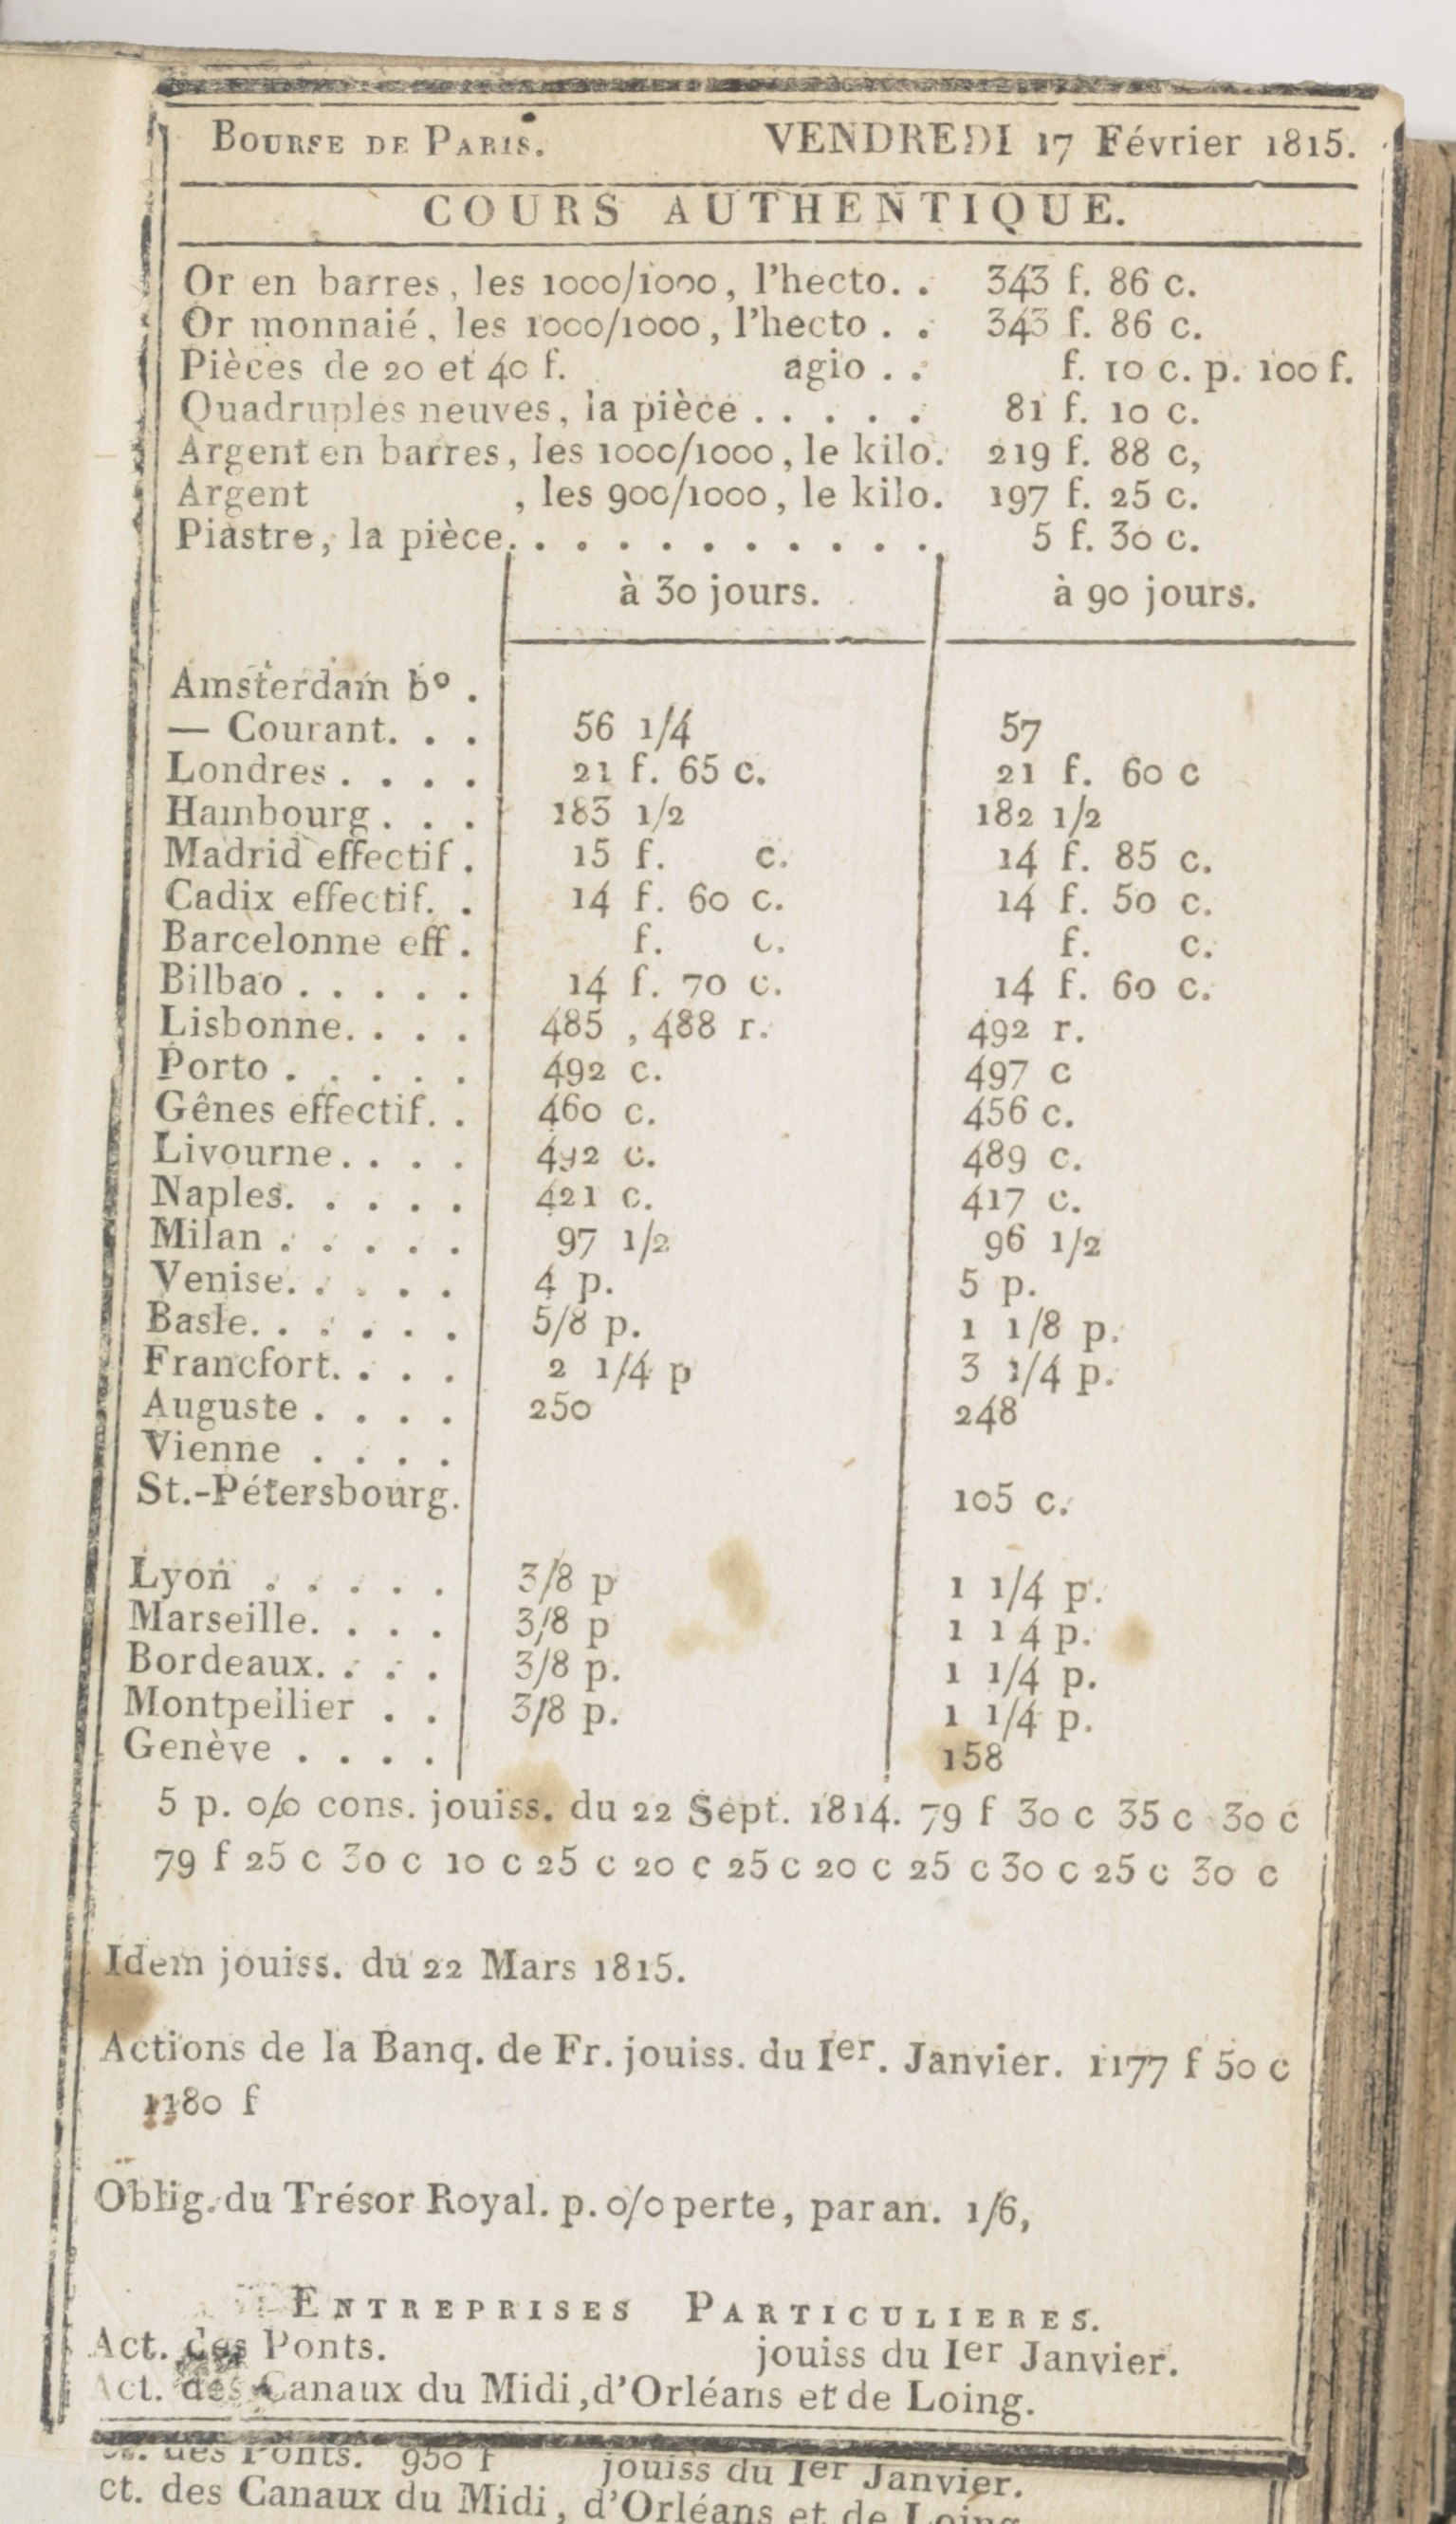 BOURSE DE PARIS. VENDREDI 17 Février 1815.
COURS AUTHENTIQUE.
Or en barres, les 1000/1000, l'hecto. . 343 f. 86 c.
Or monnaié, les 1000/1000, l'hecto . . 343 f. 86 c.
Pièces de 20 et 40 f. agio . . f. 10 c. p. 100 f.
Quadruples neuves, la pièce . . . . . 81 f. 10 c.
Argent en barres, les 1000/1000, le kilo. 219 f. 88 c,
Argent , les 900/1000, le kilo. 197 f. 25 c.
Piastre, la pièce. . . . . . . . . . . 5 f. 30 c.
à 30 jours. à 90 jours.
Amsterdam bº .
— Courant. . . 56 1/4 57
Londres . . . . 21 f. 65 c. 21 f. 60 c
Hambourg . . . 183 1/2 182 1/2
Madrid effectif . 15 f. c. 14 f. 85 c.
Cadix effectif. . 14 f. 60 c. 14 f. 50 c.
Barcelonne eff . f. c. f. c.
Bilbao . . . . . 14 f. 70 c. 14 f. 60 c.
Lisbonne. . . . 485 , 488 r. 492 r.
Porto . . . . . 492 c. 497 c
Gênes effectif. . 460 c. 456 c.
Livourne. . . . 492 c. 489 c.
Naples. . . . . 421 c. 417 c.
Milan . . . . . 97 1/2 96 1/2
Venise. . . . . 4 p. 5 p.
Basle. . . . . . 5/8 p. 1 1/8 p.
Francfort. . . . 2 1/4 p 3 1/4 p.
Auguste . . . . 250 248
Vienne . . . .
St.-Pétersbourg. 105 c.
Lyon . . . . . 3/8 p 1 1/4 p.
Marseille. . . . 3/8 p 1 1 4 p.
Bordeaux. . . . 3/8 p. 1 1/4 p.
Montpellier . . 3/8 p. 1 1/4 p.
Genève . . . . 158
5 p. o/o cons. jouiss. du 22 Sept. 1814. 79 f 30 c 35 c 30 c
79 f 25 c 30 c 10 c 25 c 20 c 25 c 20 c 25 c 30 c 25 c 30 c
Idem jouiss. du 22 Mars 1815.
Actions de la Banq. de Fr. jouiss. du Ier. Janvier. 1177 f 50 c
1180 f
Oblig. du Trésor Royal. p. o/o perte, par an. 1/6,
ENTREPRISES PARTICULIERES.
Act. des Ponts. jouiss du Ier Janvier.
Act. des Canaux du Midi, d'Orléans et de Loing.
des Ponts. 950 f jouiss du Ier Janvier.
ct. des Canaux du Midi, d'Orléans et de Loing